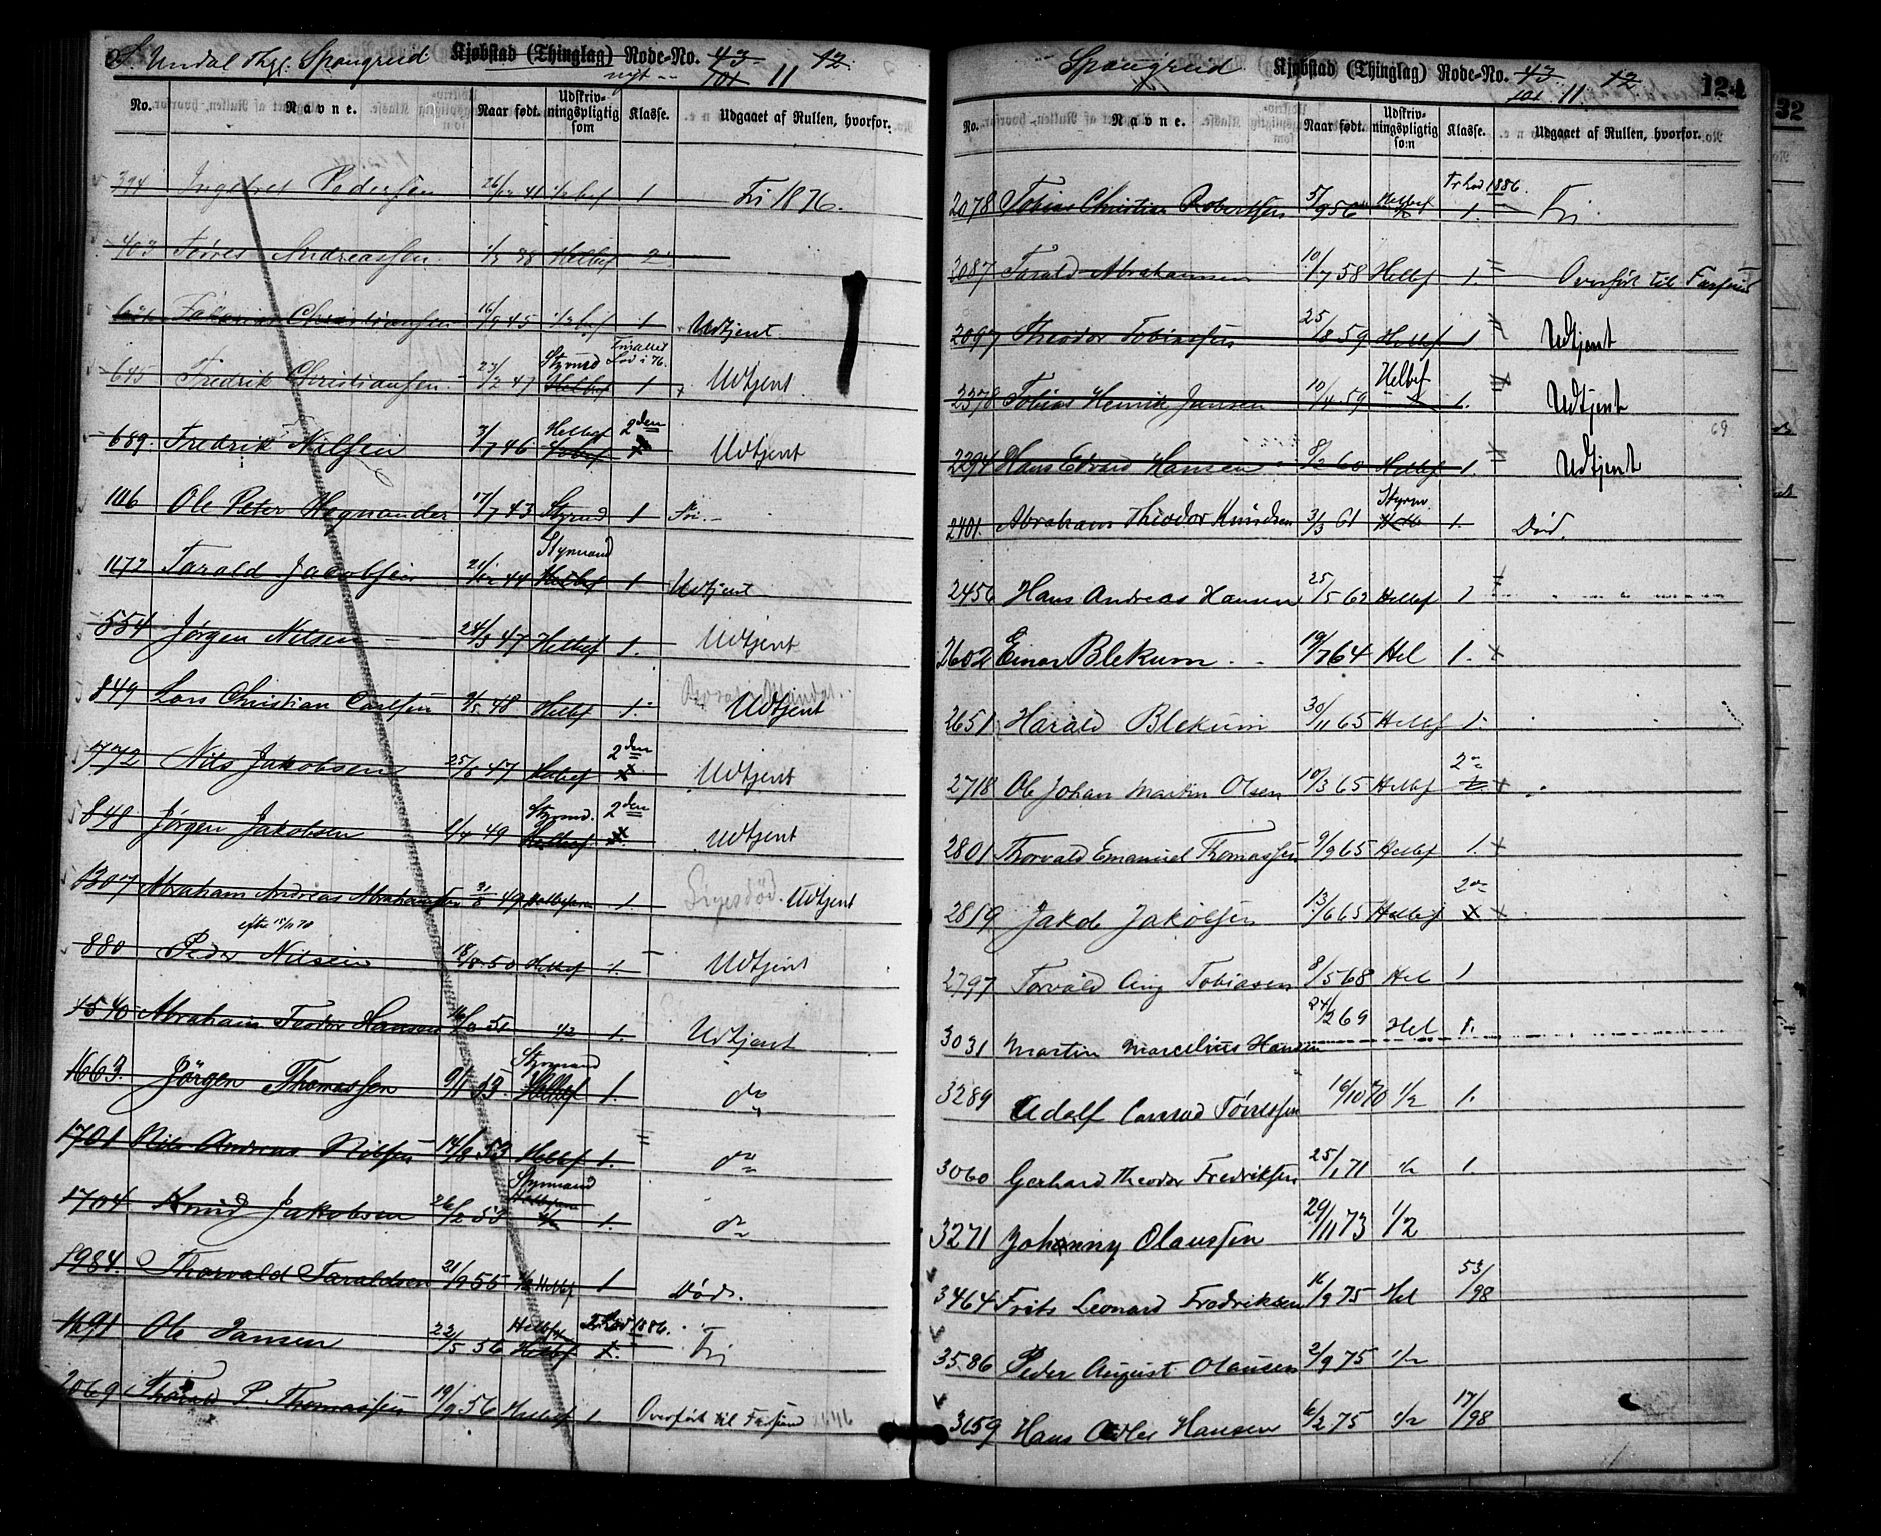 S. Undal Thgl. Spangereid Kjøbstad (Thinglag) Rode-No. 43 12.
nyt 101 11
No. Navne. Naar født. Udskrivningspligtig som Klasse. Udgaaet af Rullen, hvorfor.
394 Ingebret Pedersen 26/12 41 1/2 bef 1 Fri 1876.
403 Tørres Andreassen 38 Helbef 2
Christiansen 16/9 45 1/2 bef 1 Udtjent
645 Fredrik Christiansen 27/2 47 Styrmd Helbef 1 Udtjent
689. Fredrik Nilsen 3/7 46 Helbef 2den Udtjent
1106 Ole Peter Hegnander 17/7 43 Styrmd 1 Fri.
1172 Tarald Jacobsen 21/12 44 Styrmand Helbef 1 Udtjent
554 Jørgen Nilsen 24/3 47 Helbef 1. Udtjent
849 Lars Christian Carlsen 9/5 48 Helbef 1. Udtjent
772 Nils Jakobsen 25/8 47 Helbef 2den Udtjent
848 Jørgen Jakobsen 8/4 49 Styrmd. Helbef 2den Udtjent
1307 Abraham Andreas Abrahamsen 31/8 49 1. Udtjent
880 Peder Nilsen 18/8 50 Helbef 1. Udtjent
1540 Abraham Teodor Hansen 51 1/2 1. Udtjent
1663. Jørgen Thomassen 9/11 53 Styrmand Helbef 1. do
1701 Nils Andreas Nilsen 14/8 53 Helbef 1. do
1704 Knud Jakobsen 26/2 53 Styrmand 1/2 1. do
1984. Thorvald Taraldsen 21/9 55 Helbef 1 Død.
1691 Ole Jansen 22/5 56 Helbef Helbef 1886. Fri
2069 Tharald P. Thomassen 19/9 56 Helbef 1 Overført til Farsund
Spangereid Kjøbstad (Thinglag) Rode-No. 43 12 124
101 11
No. Navne. Naar født. Udskrivningspligtig som Klasse. Udgaaet af Rullen, hvorfor.
2078 Tobias Christian Robertsen 5/9 56 Helbef 1. 1886. Fri
2087 Tarald Abrahamsen 10/7 58 Helbef 1. Overført til Farsund
2097 Theodor Tobiassen 25/8 59 Helbef 1 Udtjent
2378 Tobias Henrik Jansen 10/4 59 Helbef 1. Udtjent
2294 Hans Edvard Hansen 8/2 60 Helbef 1. Udtjent
2401. Abraham Theodor Knudsen 3/3 61 Styrm. 1. Død.
2456 Hans Andreas Hansen 25/5 62 Helbef 1
2602 Einar Blekum 19/7 64 Hel 1.
2651 Harald Blekum 30/11 65 Helbef 1.
2718 Ole Johan Martin Olsen 10/3 65 Helbef 2
2801 Thorvald Emanuel Thomassen 9/9 65 Helbef 1.
2819 Jakob Jakobsen 13/6 65 Helbef 2
2797 Torvald Aug Tobiasen 8/5 68 Hel 1
3031 Martin Marcelius Hansen 24/2 69 Hel 1.
3289 Adolf Conrad Tørressen 16/10 70 1/2 1.
3060 Gerhard Theodor Fredriksen 25/1 71 1/2 1.
3271 Johanny Olaussen 29/11 73 1/2
3464 Frits Leonard Fredriksen 16/9 75 Hel 53/98
3586 Peder August Olausen 2/9 75 1/2
3659 Hans Adler Hansen 6/2 75 1/2 17/98
32